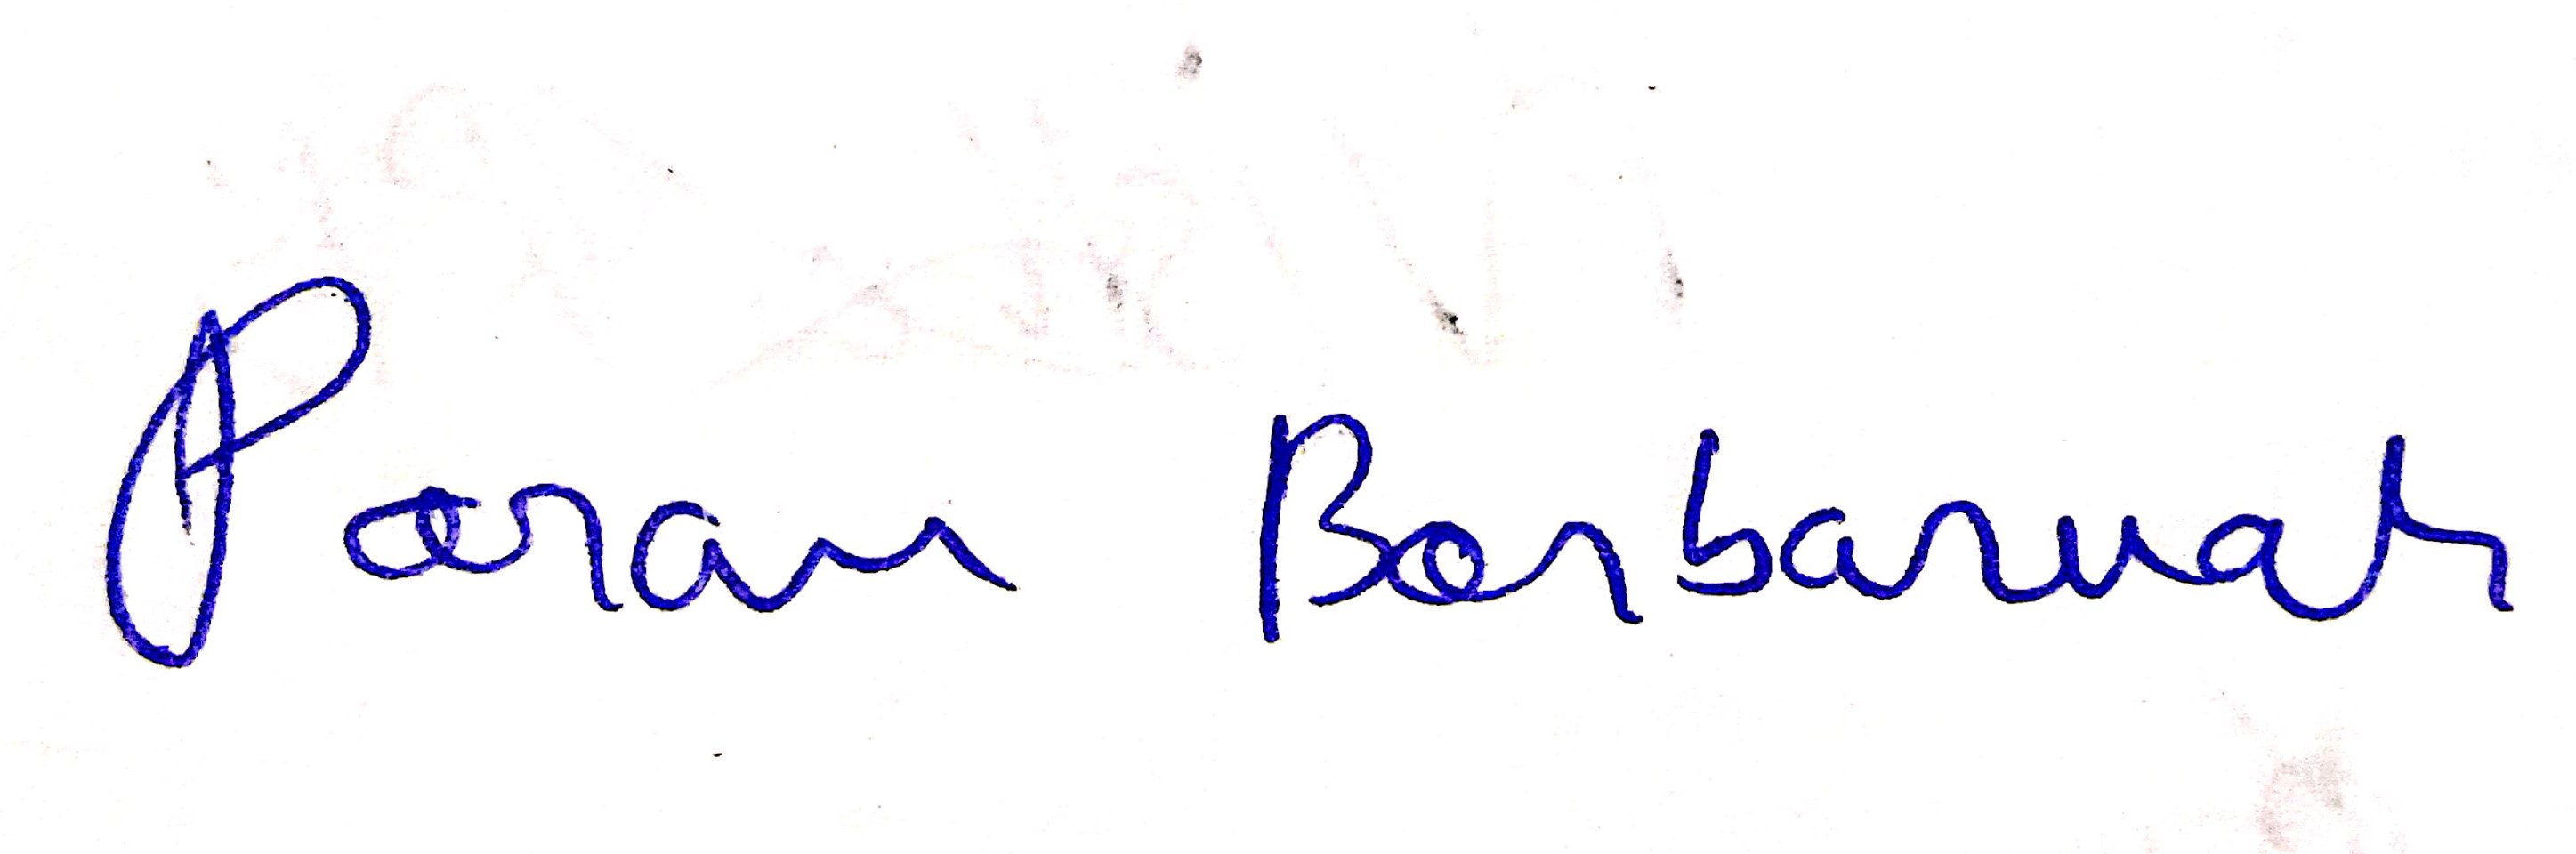 Poran Borbaruah